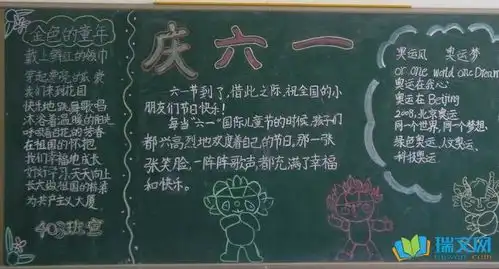 金色的童年
戴上鲜红的领巾
我们来到花园
快乐地跳舞歌唱
沐浴着温暖的阳光
呼吸着百花的芳香
在祖国的怀抱
我们幸福地成长
好好学习,天天向上
长大做祖国的栋梁
为共产主义大厦
403班宣
庆六一
六一节到了,借此之际,祝全国的小
朋友们节日快乐!
每当“六一”国际儿童节的时候,孩子们
都兴高烈地欢度着自己的节日,那一张
张笑脸,一阵阵歌声都充满了幸福
和快乐。
奥运风 奥运梦
or one world one Dream
奥运在我心
奥运在Beijing
2008,北京奥运
同一个世界,同一个梦想,
绿色奥运、人文奥运、
科技奥运
瑞文网
ruiwen.com